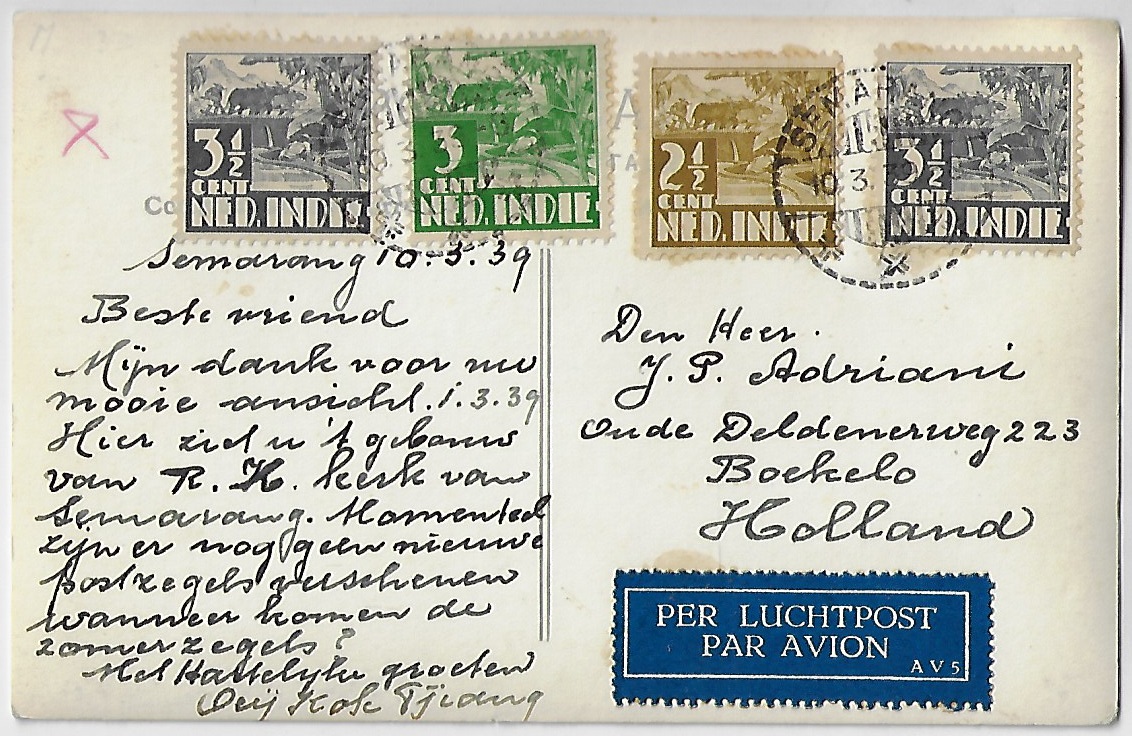 3½
CENT
NED. INDIE
3
CENT
NED. INDIE
2½
CENT
NED. INDIE
3½
CENT
NED. INDIE
SEMAR
10.3.
Co
TA
Semarang 10.3.39
Beste vriend
Mijn dank voor uw
mooie ansicht. 1.3.39
Hier ziet u 't gebouw
van R. K. kerk van
Semarang. Momenteel
zijn er nog geen nieuwe
postzegels verschenen
wanneer komen de
zomerzegels?
Met Hartelijke groeten
Oeij Kok Tjiang
Den Heer.
J. P. Adriani
Oude Deldenerweg 223
Boekelo
Holland
PER LUCHTPOST
PAR AVION
AV5